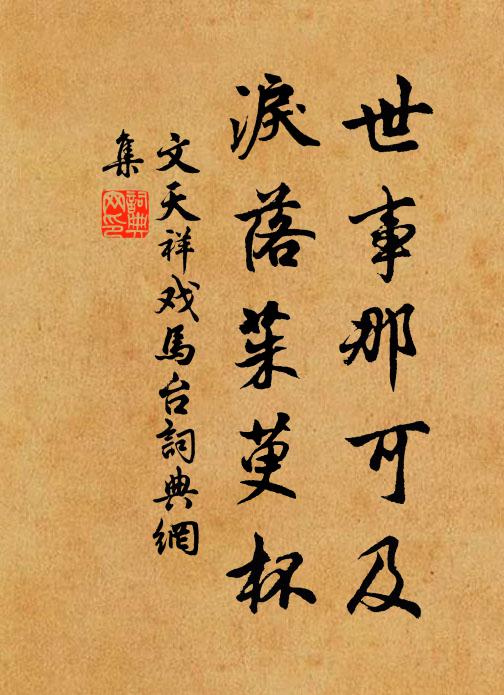 世事那可及
淚落茱萸杯
文天祥戏馬台詞典網
集
詞典网印